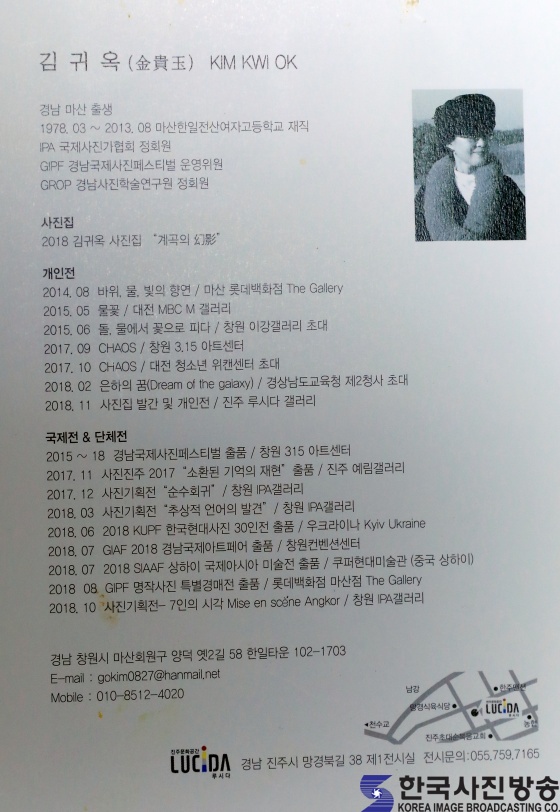 김 귀 옥 (金貴玉) KIM KWI OK
경남 마산 출생
1978. 03 ~ 2013. 08 마산한일전산여자고등학교 재직
IPA 국제사진가협회 정회원
GIPF 경남국제사진페스티벌 운영위원
GROP 경남사진학술연구원 정회원
사진집
2018 김귀옥 사진집 “계곡의 幻影”
개인전
2014. 08 바위, 물, 빛의 향연 / 마산 롯데백화점 The Gallery
2015. 05 물꽃 / 대전 MBC M 갤러리
2015. 06 돌, 물에서 꽃으로 피다 / 창원 이강갤러리 초대
2017. 09 CHAOS / 창원 3.15 아트센터
2017. 10 CHAOS / 대전 청소년 위캔센터 초대
2018. 02 은하의 꿈(Dream of the galaxy) / 경상남도교육청 제2청사 초대
2018. 11 사진집 발간 및 개인전 / 진주 루시다 갤러리
국제전 & 단체전
2015 ~ 18 경남국제사진페스티벌 출품 / 창원 315 아트센터
2017. 11 사진진주 2017 “소환된 기억의 재현” 출품 / 진주 예림갤러리
2017. 12 사진기획전 “순수회귀” / 창원 IPA갤러리
2018. 03 사진기획전 “추상적 언어의 발견” / 창원 IPA갤러리
2018. 06 2018 KUPF 한국현대사진 30인전 출품 / 우크라이나 Kyiv Ukraine
2018. 07 GIAF 2018 경남국제아트페어 출품 / 창원컨벤션센터
2018. 07 2018 SIAAF 상하이 국제아시아 미술전 출품 / 쿠퍼현대미술관 (중국 상하이)
2018 08 GIPF 명작사진 특별경매전 출품 / 롯데백화점 마산점 The Gallery
2018. 10 사진기획전- 7인의 시각 Mise en scène Angkor / 창원 IPA갤러리
경남 창원시 마산회원구 양덕 옛2길 58 한일타운 102-1703
E-mail : gokim0827@hanmail.net
Mobile : 010-8512-4020
남강
한주맨션
망경식육식당
LUCIDA
루시다
천수교
농협
진주초대순복음교회
진주문화공간
LUCIDA
루시다
경남 진주시 망경북길 38 제1전시실 전시문의:055.759.7165
한국사진방송
KOREA IMAGE BROADCASTING CO.